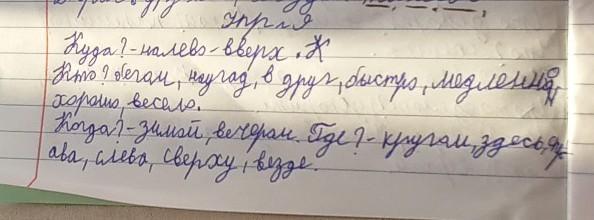 Упр. я
Куда? - налево - вверх. К
Кто? бегом, наугад, в друг, быстро, медленно,
хорошо, весело.
Когда? - зимой, вечером. Где? - кругом, здесь,
ава, слева, сверху, везде.